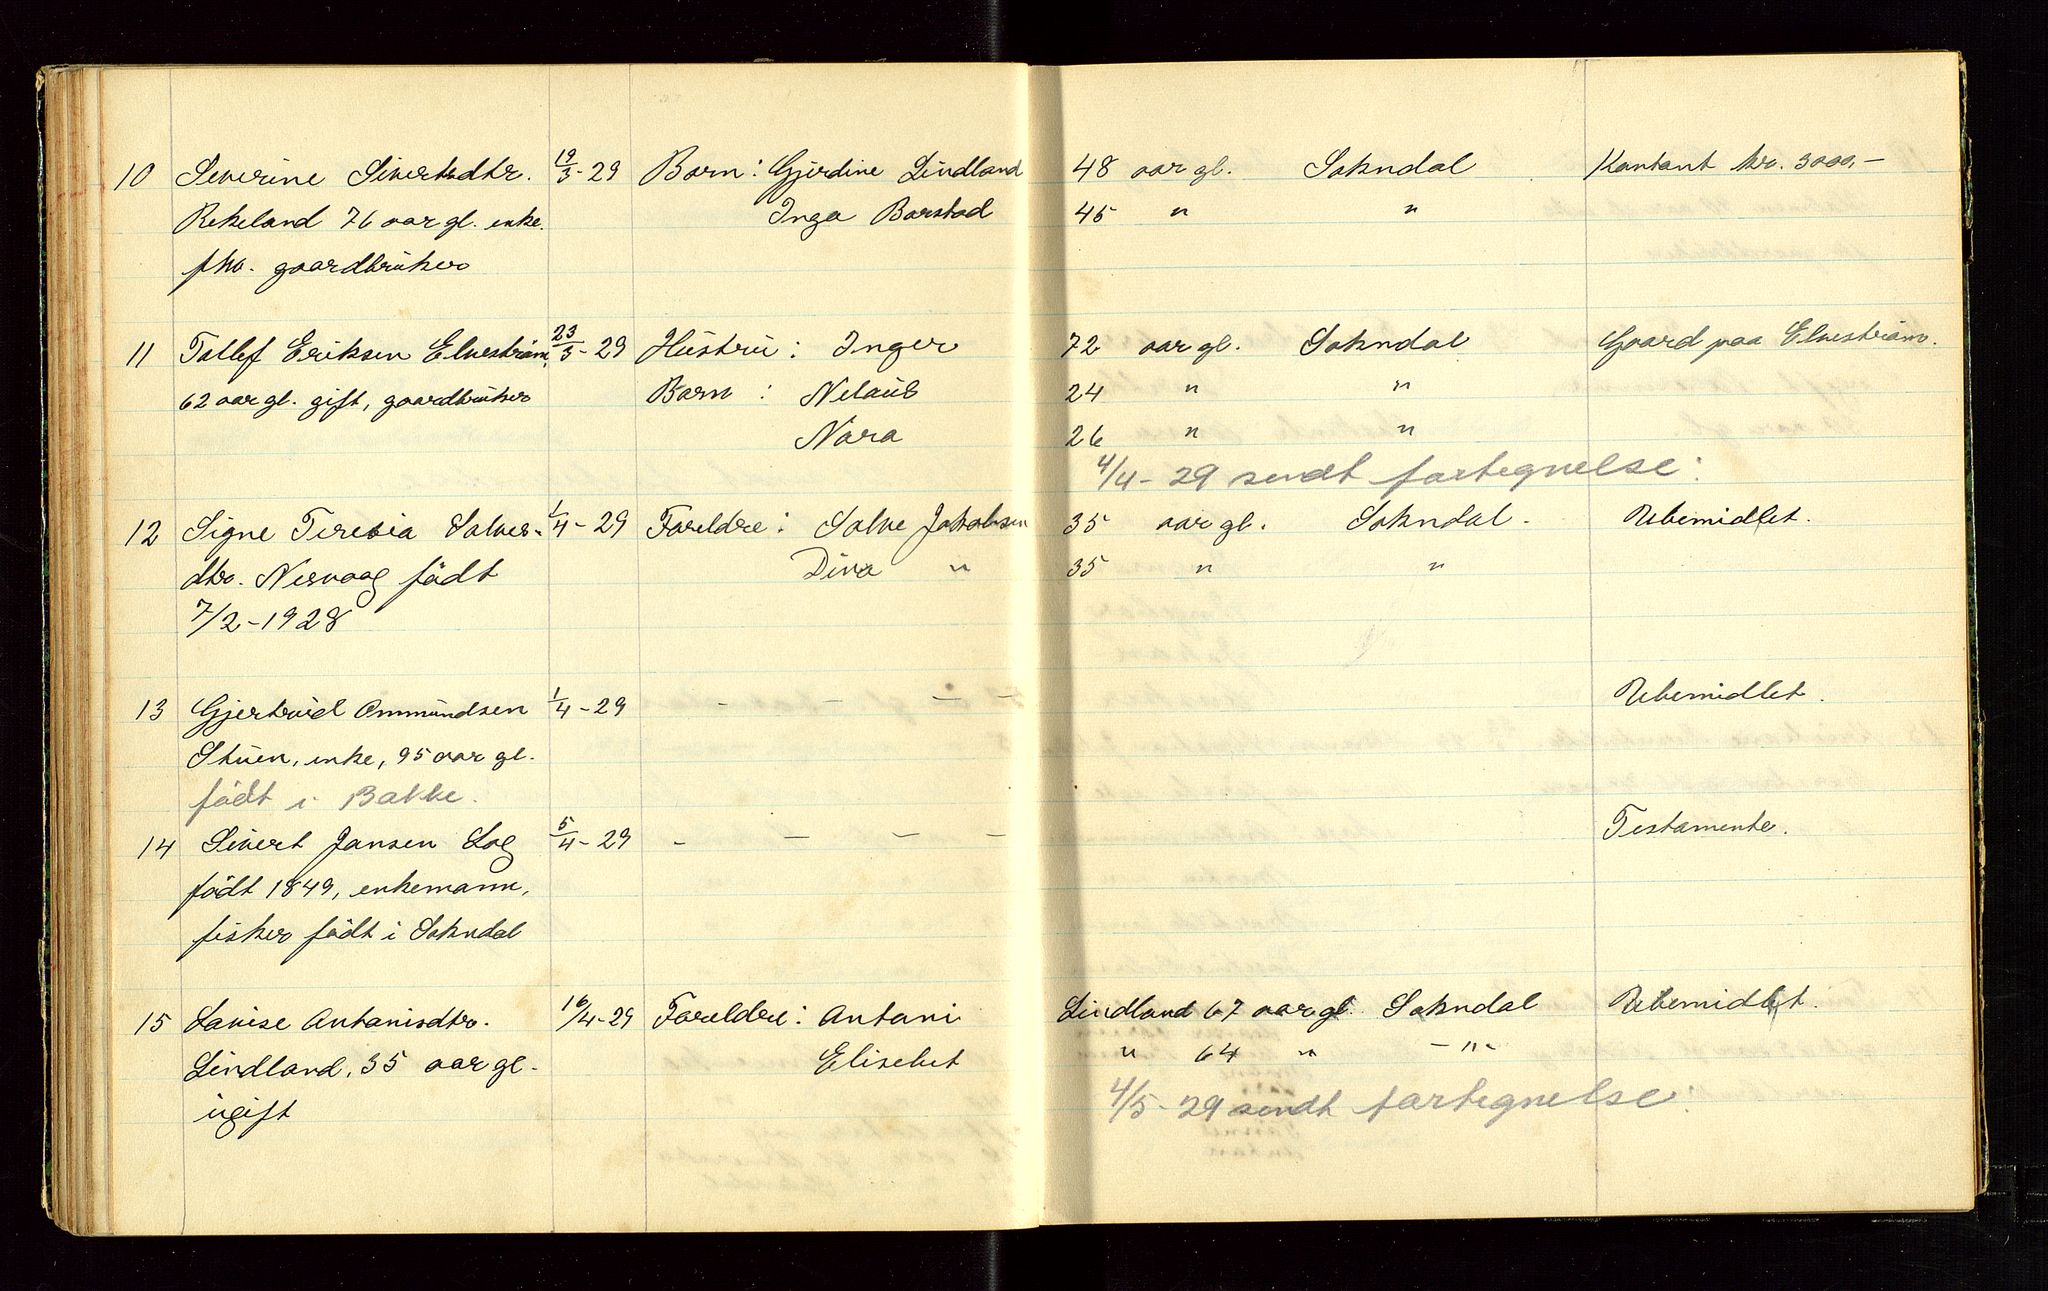 10 Severine Sivertsdtr. 19/3-29 Barn: Gjerdine Lindland 48 aar gl. Sokndal Kontant kr. 3000,-
Rekeland 76 aar gl. enke Inga Barstad 45 " "
fhv. gaardbruker
11 Tollef Eriksen Elvestrøm, 23/3-29 Hustru: Inger 72 aar gl. Sokndal Gaard paa Elvestrøm.
62 aar gl. gift, gaardbruker Barn: Nelaus 24 " "
Nora 26 " "
4/4-29 sendt fortegnelse.
12 Signe Teresia Salves- 1/4-29 Foreldre: Salve Jakobsen 35 aar gl. Sokndal. Ubemidlet.
dtr. Nesvaag født Dina " 35 " "
7/2-1928
13 Gjertrud Ommundsen 1/4-29 - - - - Ubemidlet.
Stuen, enke, 95 aar gl.
født i Bakke.
14 Sivert Jansen Log 5/4-29 - - - - Testamente.
født 1849, enkemann,
fisker født i Sokndal
15 Lovise Antonisdtr. 16/4-29 Foreldre: Antoni Lindland 67 aar gl. Sokndal Ubemidlet.
Lindland, 35 aar gl. Elisebet " 64 " -"-
ugift 4/5-29 sendt fortegnelse.